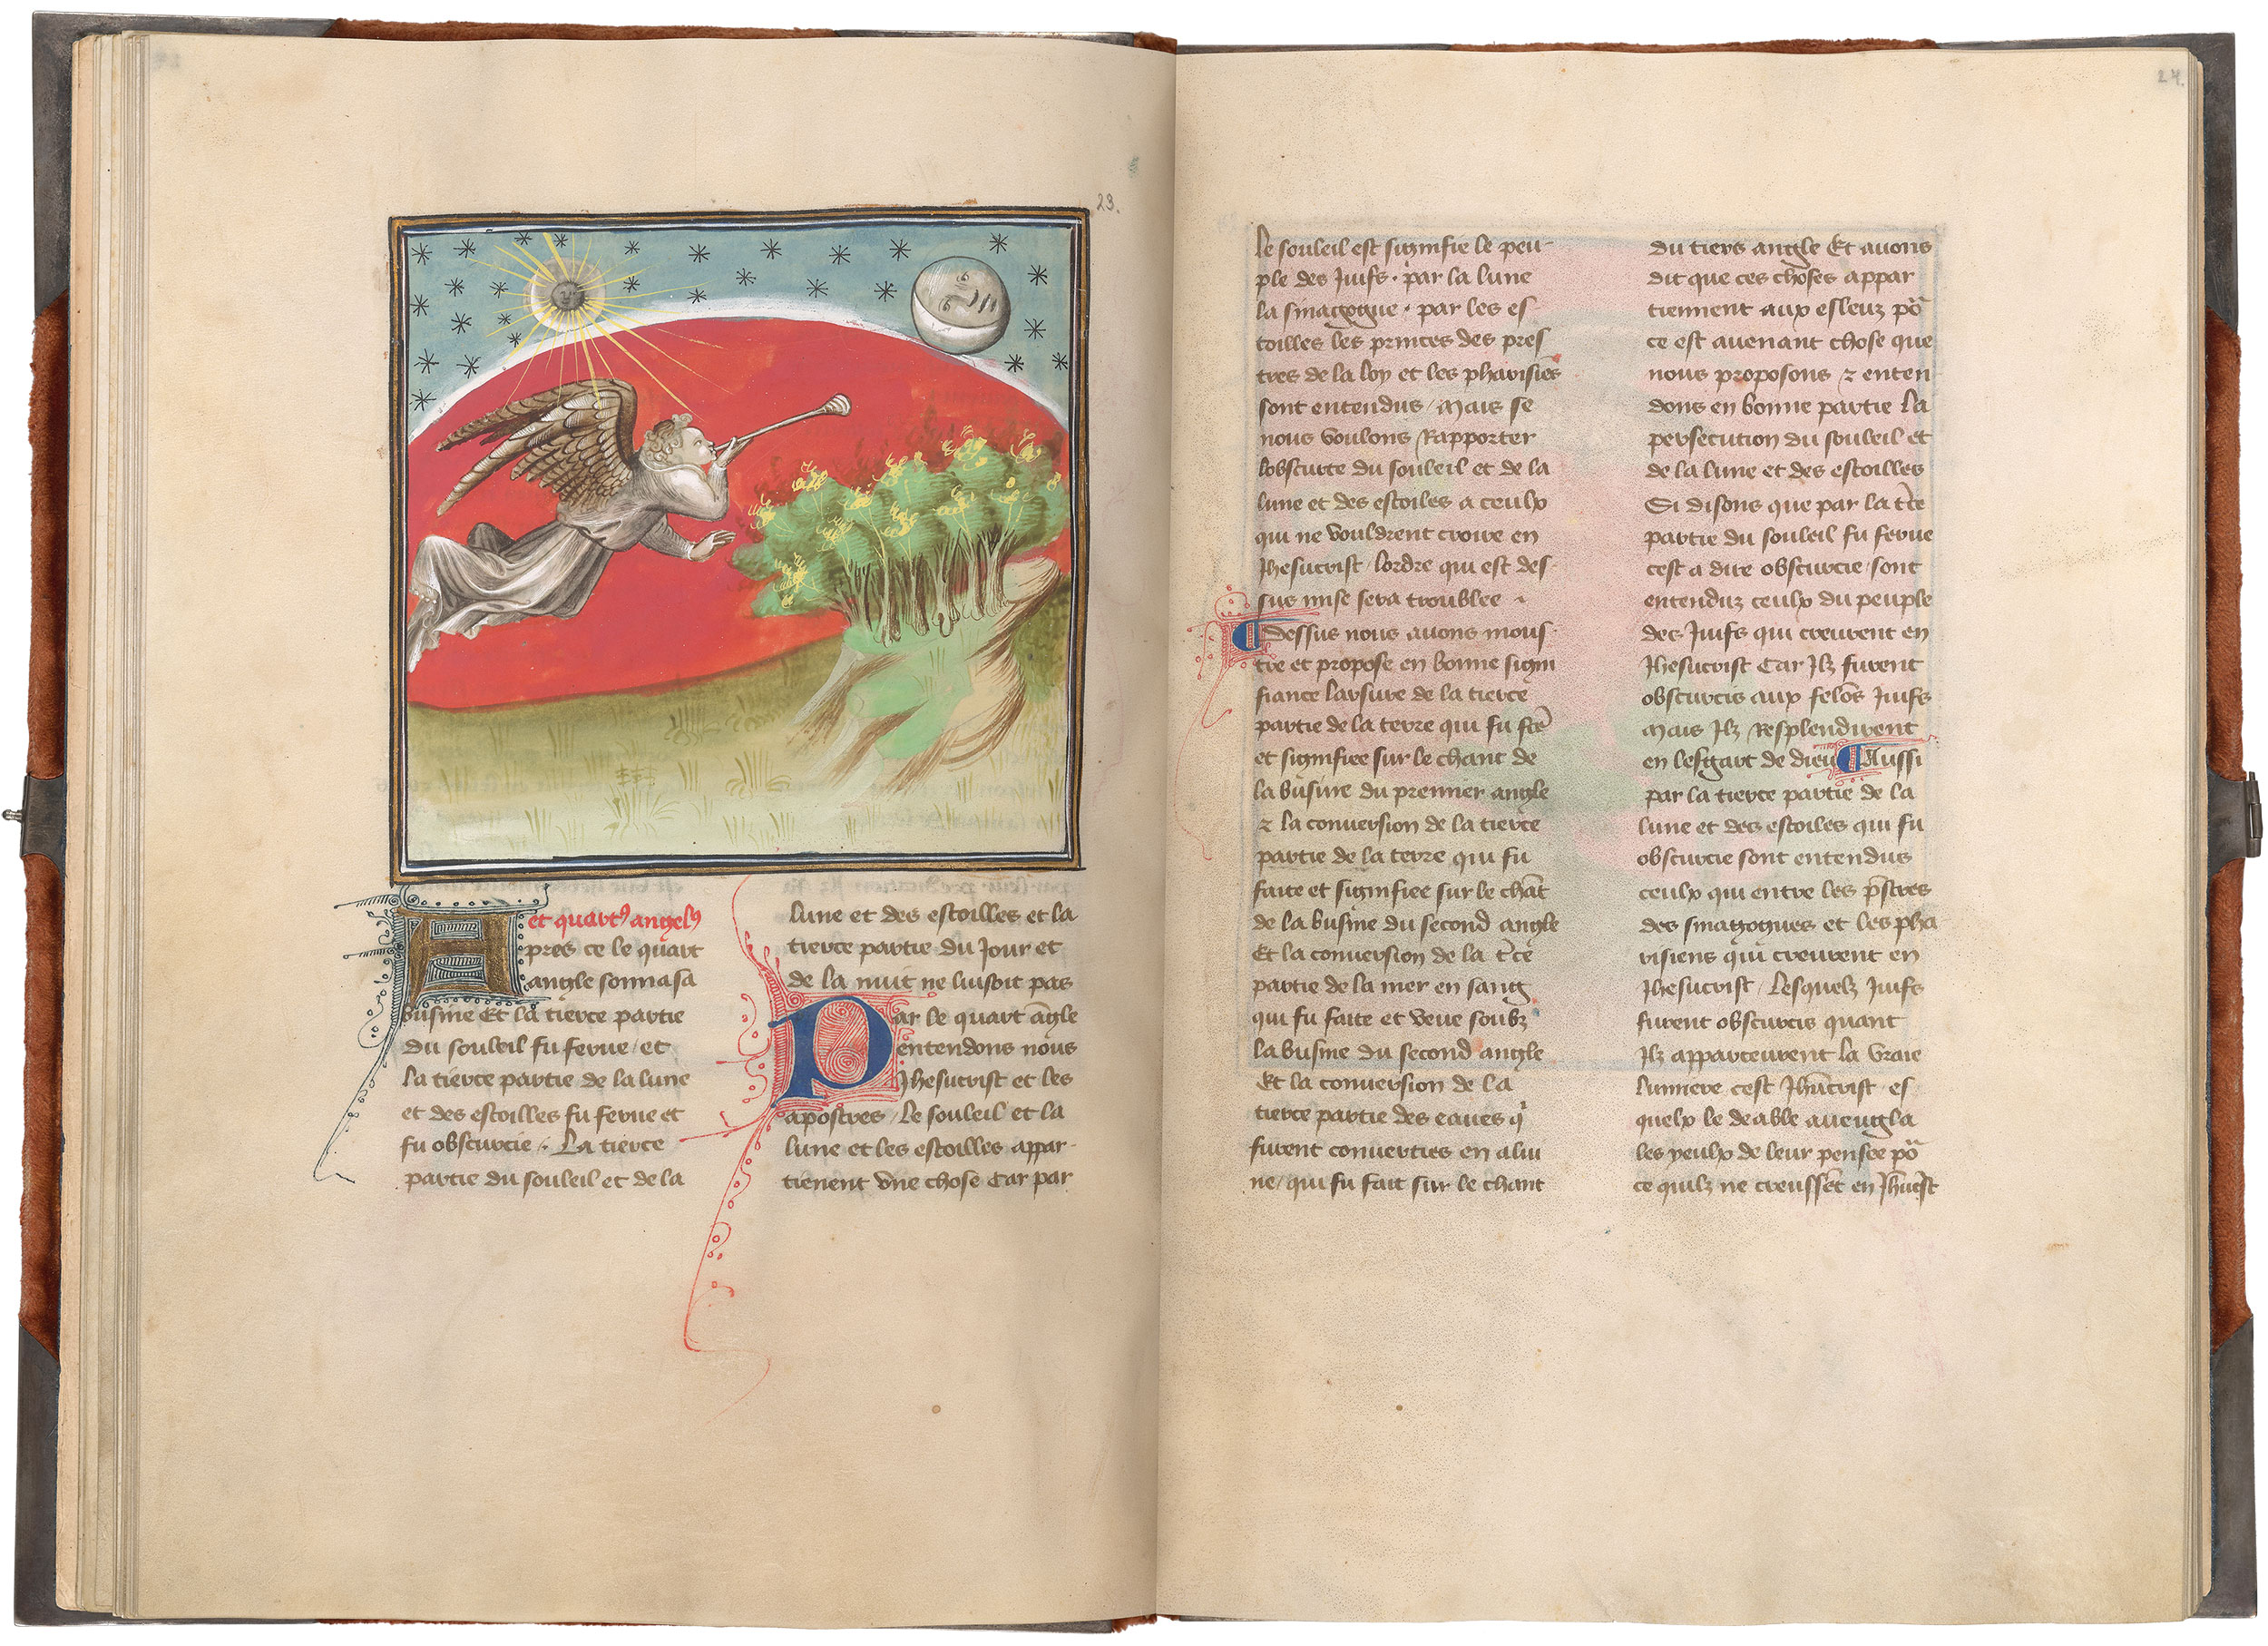 23.
et quart⁹ angel⁹
Apres ce le quart
angle sonna sa
busine Et la tierce partie
du souleil fu ferue / et
la tierce partie de la lune
et des estoilles fu ferue et
fu obscurcie . La tierce
partie du souleil et de la
lune et des estoilles et la
tierce partie du Jour et
de la nuit ne luisoit pas
Par le quart āgle
entendons nous
Jhesucrist et les
apostres / Le souleil et la
lune et les estoilles appar-
tienent vne chose Car par
24.
le souleil est signifie le peu-
ple des Juifs . par la lune
la sinagogue . par les es
toilles les princes des pres
tres de la loy et les pharisiēs
sont entendus / Mais se
nous voulons Rapporter
lobscurte du souleil et de la
lune et des estoiles a ceulx
qui ne vouldrent croire en
Jhesucrist / lordre qui est des-
sus mise sera troublee
Dessus nous auons mous-
tre et propose en bonne signi
fiance larsure de la tierce
partie de la terre qui fu fcē
et signifiee sur le chant de
la busine du premier angle
⁊ la conuersion de la tierce
partie de la terre qui fu
faite et signifiee sur le chāt
de la busine du second angle
Et la conuersion de la t̄ce
partie de la mer en sang
qui fu faite et veue soubz
la busine du second angle
Et la conuersion de la
tierce partie des eaues q̄
furent conuerties en alui
ne / qui fu fait sur le chant
du tiers angle Et auons
dit que ces choses appar
tiennent aux esleuz po͂
ce est auenant chose que
nous proposons ⁊ enten
dons en bonne partie la
persecution du souleil et
de la lune et des estoilles
Si disons que par la t̄ce
partie du souleil fu ferue
cest a dire obscurcie / sont
entenduz ceulx du peuple
des Juifs qui creurent en
Jhesucrist Car Jlz furent
obscurcis aux felōs Juifs
Mais Jlz Resplendirent
en lesgart de dieu Aussi
par la tierce partie de la
lune et des estoiles qui fu
obscurcie sont entendus
ceulx qui entre les p̄stres
des sinagogues et les pha
risiens qui creurent en
Jhesucrist / Lesquelz Juifs
furent obscurcis quant
Jlz apparceurent la vraie
lumiere cest Jhūcrist / es
quelx le deable aueugla
les yeulx de leur pensee po͂
ce quilz ne creussēt en Jhūcst